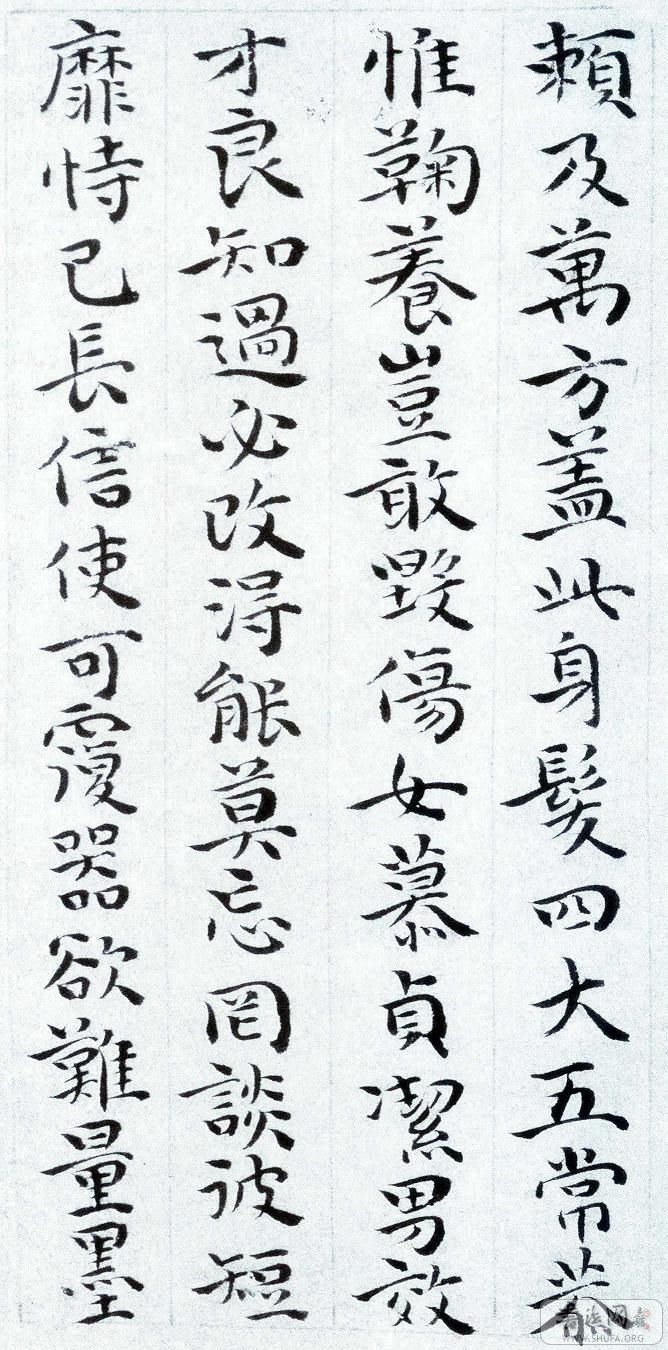 賴及萬方蓋此身髮四大五常恭
惟鞠養豈敢毀傷女慕貞潔男效
才良知過必改得能莫忘罔談彼短
靡恃己長信使可覆器欲難量墨
書法网
WWW.SHUFA.ORG